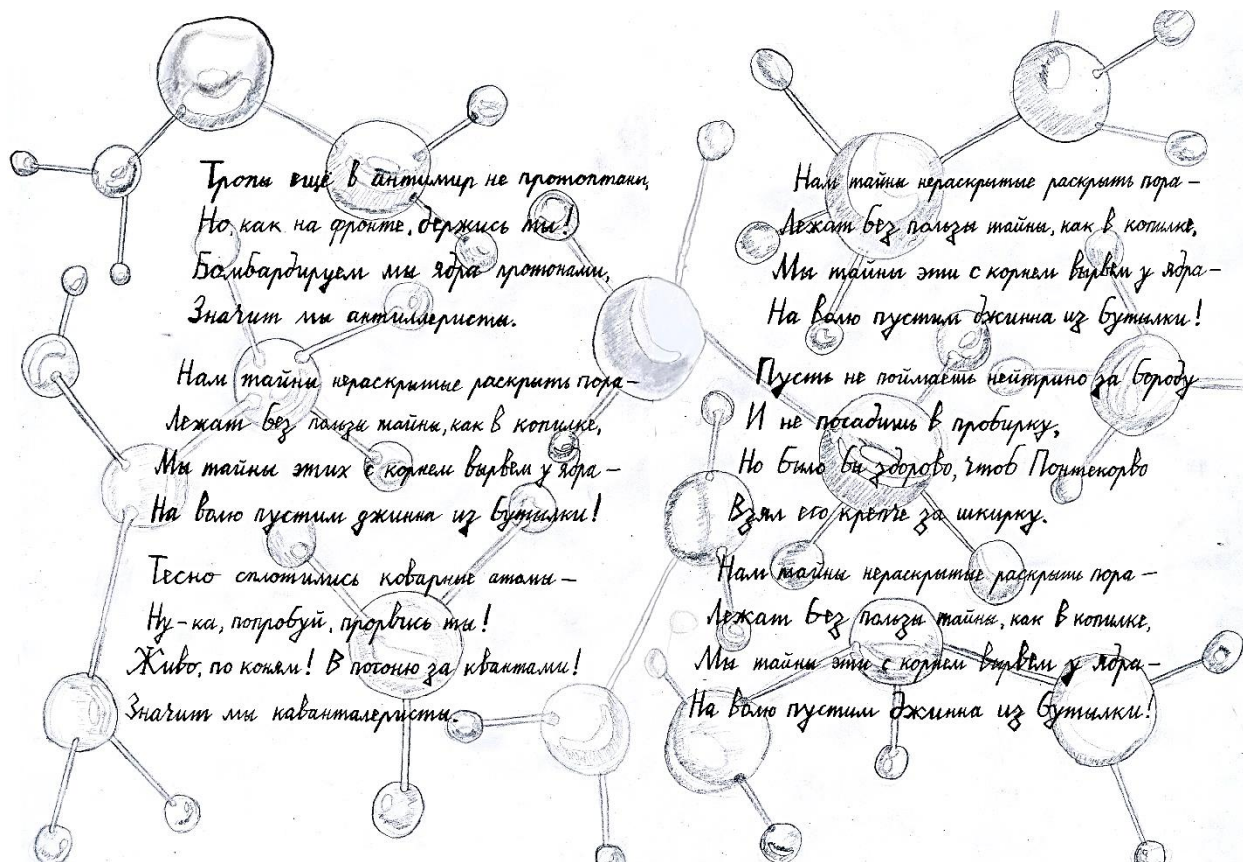 Тропы ещё в антимир не протоптаны,
Но как на фронте, держись ты!
Бомбардируем мы ядра протонами,
Значит мы антиллеристы.
Нам тайны нераскрытые раскрыть пора –
Лежат без пользы тайны, как в копилке,
Мы тайны этих с корнем вырвем у ядра –
На волю пустим джинна из бутылки!
Тесно сплотились коварные атомы –
Ну-ка, попробуй, прорвись ты!
Живо, по коням! В погоню за квантами!
Значит мы каванталеристы.
Нам тайны нераскрытые раскрыть пора –
Лежат без пользы тайны, как в копилке,
Мы тайны эти с корнем вырвем у ядра –
На волю пустим джинна из бутылки!
Пусть не поймаешь нейтрино за бороду
И не посадишь в пробирку,
Но было бы здорово, чтоб Понтекорво
Взял его крепче за шкирку.
Нам тайны нераскрытые раскрыть пора –
Лежат без пользы тайны, как в копилке,
Мы тайны эти с корнем вырвем у ядра –
На волю пустим джинна из бутылки!